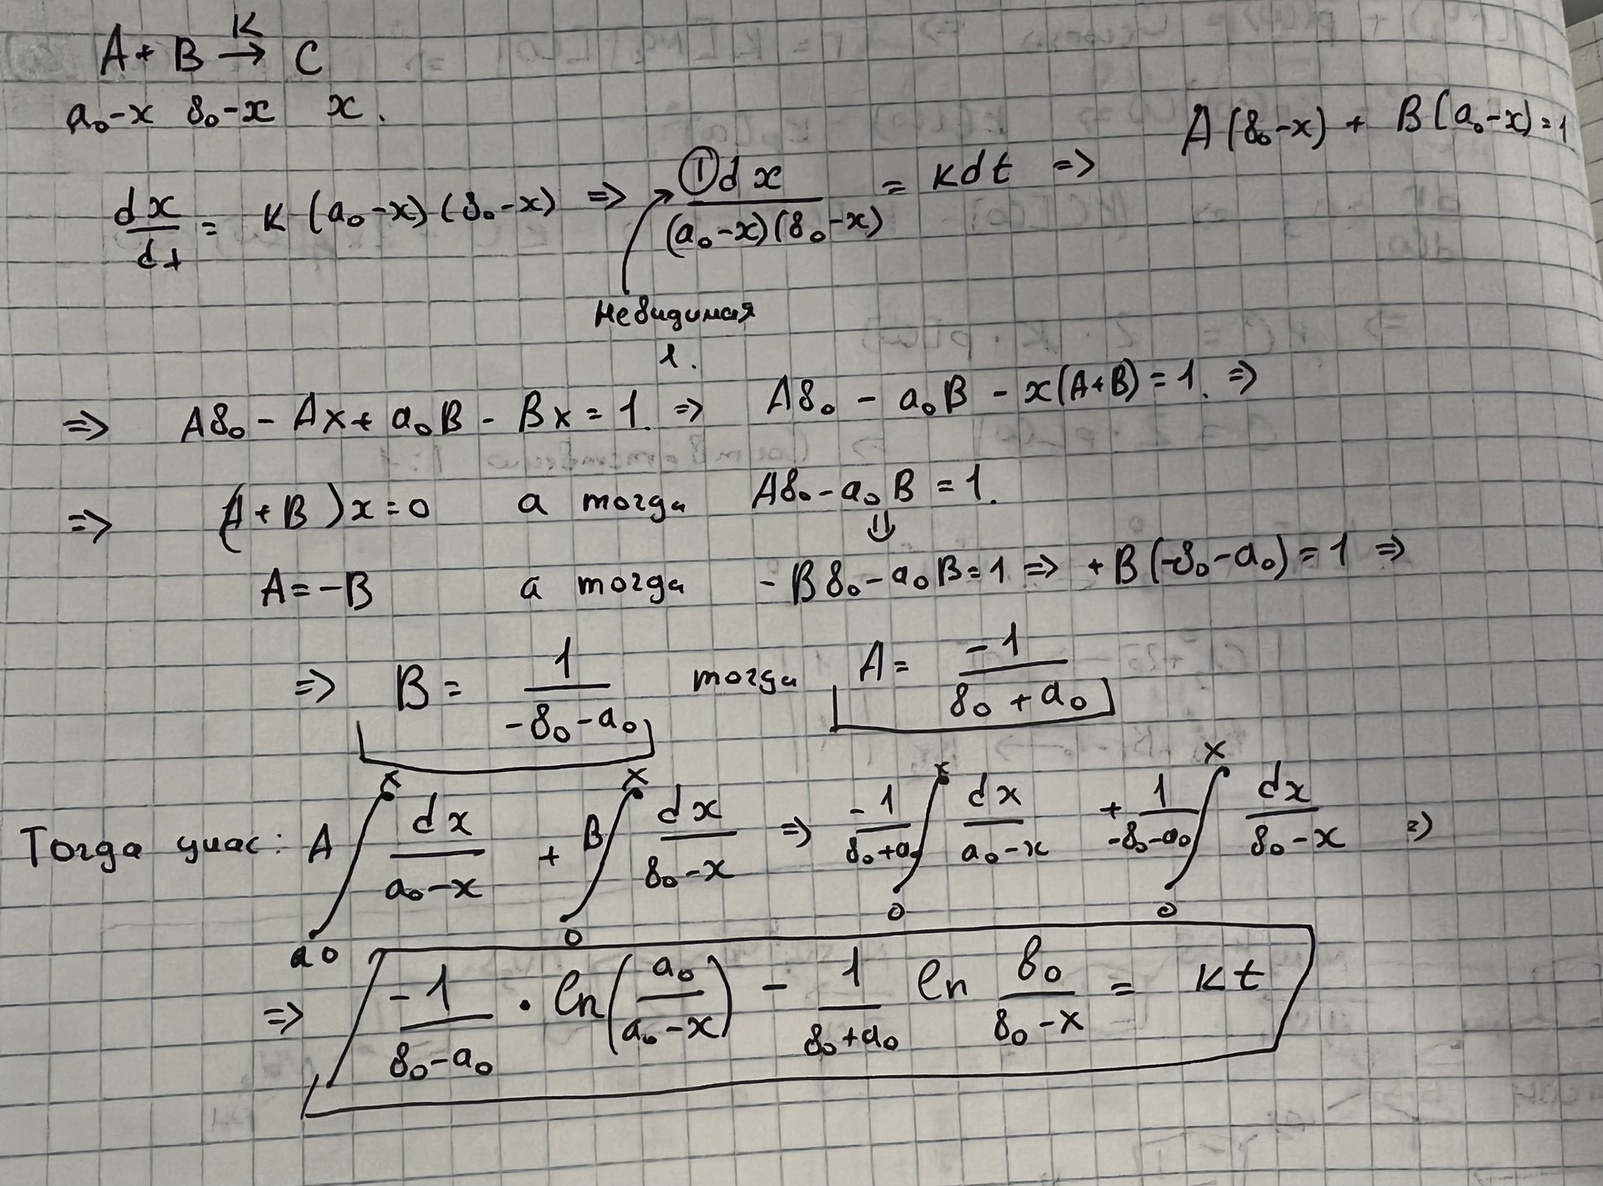 A + B →K C
a₀-x в₀-x x.
A(в₀-x) + B(a₀-x)=1
dx/dt = K (a₀-x)(в₀-x) => ①dx/((a₀-x)(в₀-x)) = kdt =>
Невидимая
1.
=> Aв₀ - Ax + a₀B - Bx = 1. => Aв₀ - a₀B - x(A+B) = 1. =>
=> (A+B)x=0 а тогда Aв₀-a₀B = 1.
⇓
A=-B а тогда -Bв₀-a₀B=1 => +B(-в₀-a₀)=1 =>
=> B = 1/(-в₀-a₀) тогда A = -1/(в₀+a₀)
Тогда у нас: A ∫_{a0}^{x} dx/(a₀-x) + B ∫_{0}^{x} dx/(в₀-x) => -1/(в₀+a₀) ∫_{0}^{x} dx/(a₀-x) + 1/(-в₀-a₀) ∫_{0}^{x} dx/(в₀-x) =>
=> -1/(в₀-a₀) · ln(a₀/(a₀-x)) - 1/(в₀+a₀) ln в₀/(в₀-x) = kt